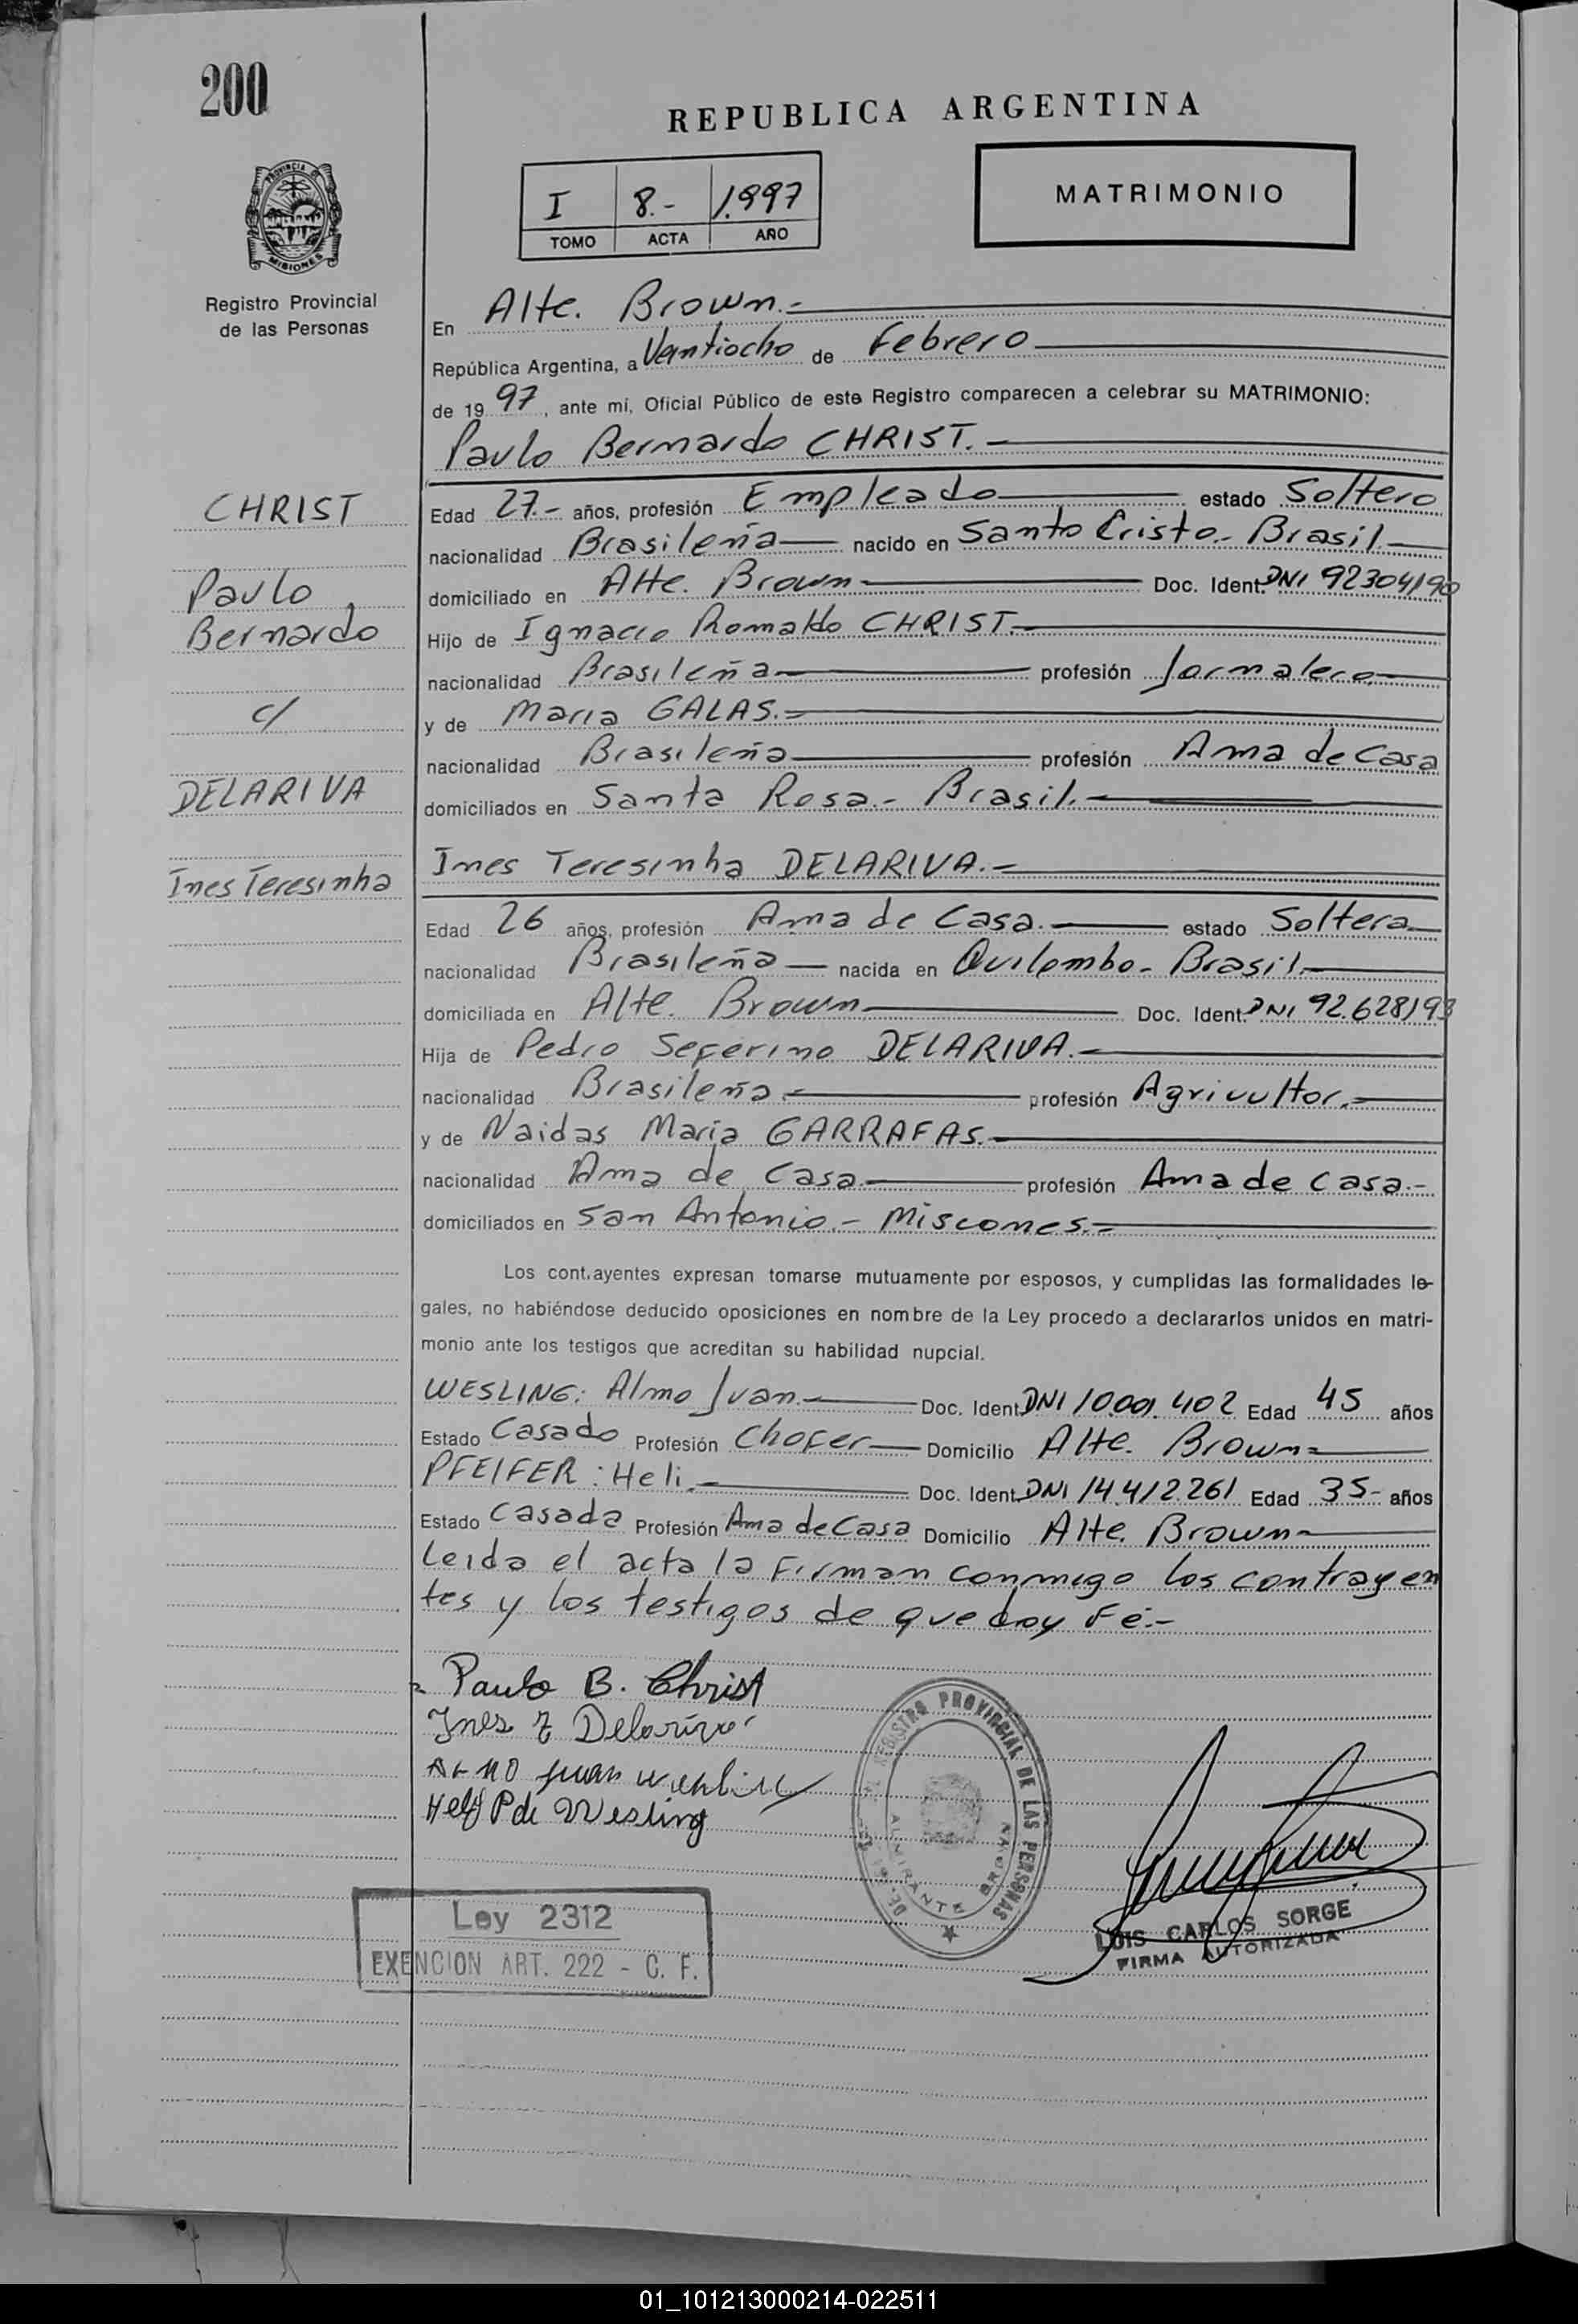 200
REPUBLICA ARGENTINA
PROVINCIA DE
MISIONES
I 8.- 1.997
TOMO ACTA AÑO
MATRIMONIO
Registro Provincial
de las Personas
En Alte. Brown.-
República Argentina, a Veintiocho de Febrero
de 19 97, ante mí, Oficial Público de este Registro comparecen a celebrar su MATRIMONIO:
Paulo Bernardo CHRIST.-
CHRIST
Paulo
Bernardo
c/
DELARIVA
Ines Teresinha
Edad 27.- años, profesión Empleado estado Soltero
nacionalidad Brasileña nacido en Santo Cristo.- Brasil.-
domiciliado en Alte. Brown Doc. Ident. DNI 92304190
Hijo de Ignacio Romaldo CHRIST.-
nacionalidad Brasileña profesión Jornalero
y de Maria GALAS.-
nacionalidad Brasileña profesión Ama de Casa
domiciliados en Santa Rosa.- Brasil.-
Ines Teresinha DELARIVA.-
Edad 26 años, profesión Ama de Casa. estado Soltera
nacionalidad Brasileña nacida en Quilombo- Brasil.-
domiciliada en Alte. Brown Doc. Ident. DNI 92.628193
Hija de Pedro Seferino DELARIVA.-
nacionalidad Brasileña.- profesión Agricultor.-
y de Naidas Maria GARRAFAS.-
nacionalidad Ama de Casa. profesión Ama de casa.-
domiciliados en San Antonio.- Misiones.-
Los cont.ayentes expresan tomarse mutuamente por esposos, y cumplidas las formalidades le-
gales, no habiéndose deducido oposiciones en nombre de la Ley procedo a declararlos unidos en matri-
monio ante los testigos que acreditan su habilidad nupcial.
WESLING: Almo Ivan.- Doc. Ident. DNI 10.001.402 Edad 45 años
Estado Casado Profesión Chofer Domicilio Alte. Brown
PFEIFER: Heli.- Doc. Ident. DNI 14.412.261 Edad 35- años
Estado Casada Profesión Ama de Casa Domicilio Alte. Brown
Leida el acta la Firman conmigo los contrayen
tes y los testigos de que doy Fé.-
Paulo B. Christ
Ines T Delariva
Heli P de Wesling
REGISTRO PROVINCIAL DE LAS PERSONAS
ALMIRANTE BROWN
LUIS CARLOS SORGE
FIRMA AUTORIZADA
Ley 2312
EXENCION ART. 222 - C. F.
01_101213000214-022511